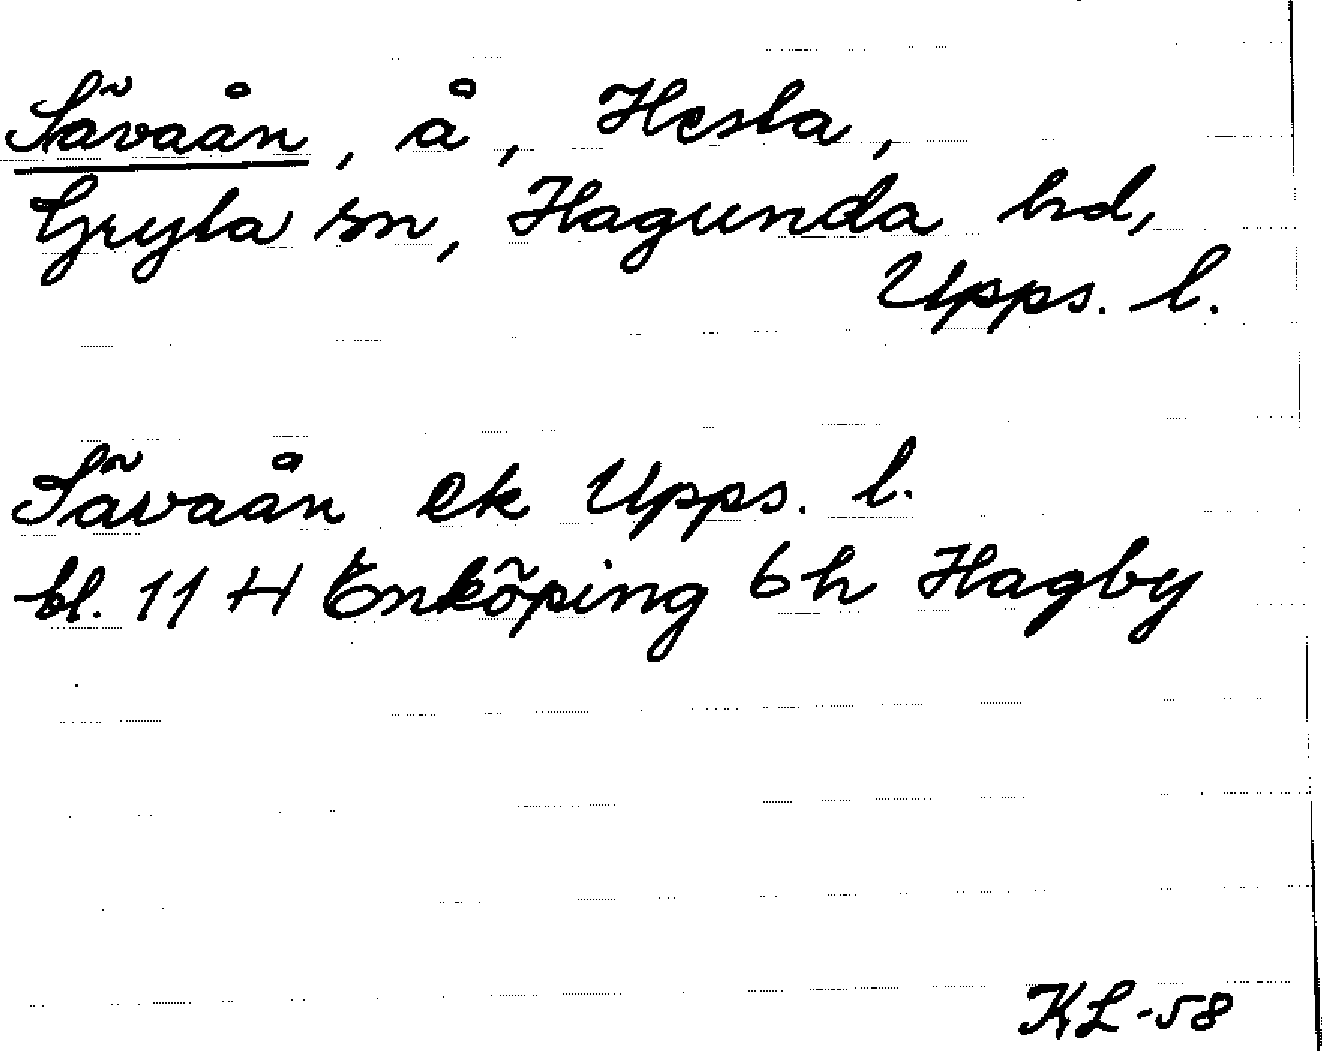 Sävaån, å, Hesta,
Gryta sn, Hagunda hd,
Upps. l.
Sävaån ek Upps. l.
bl. 11 H Enköping 6h Hagby
KL-58